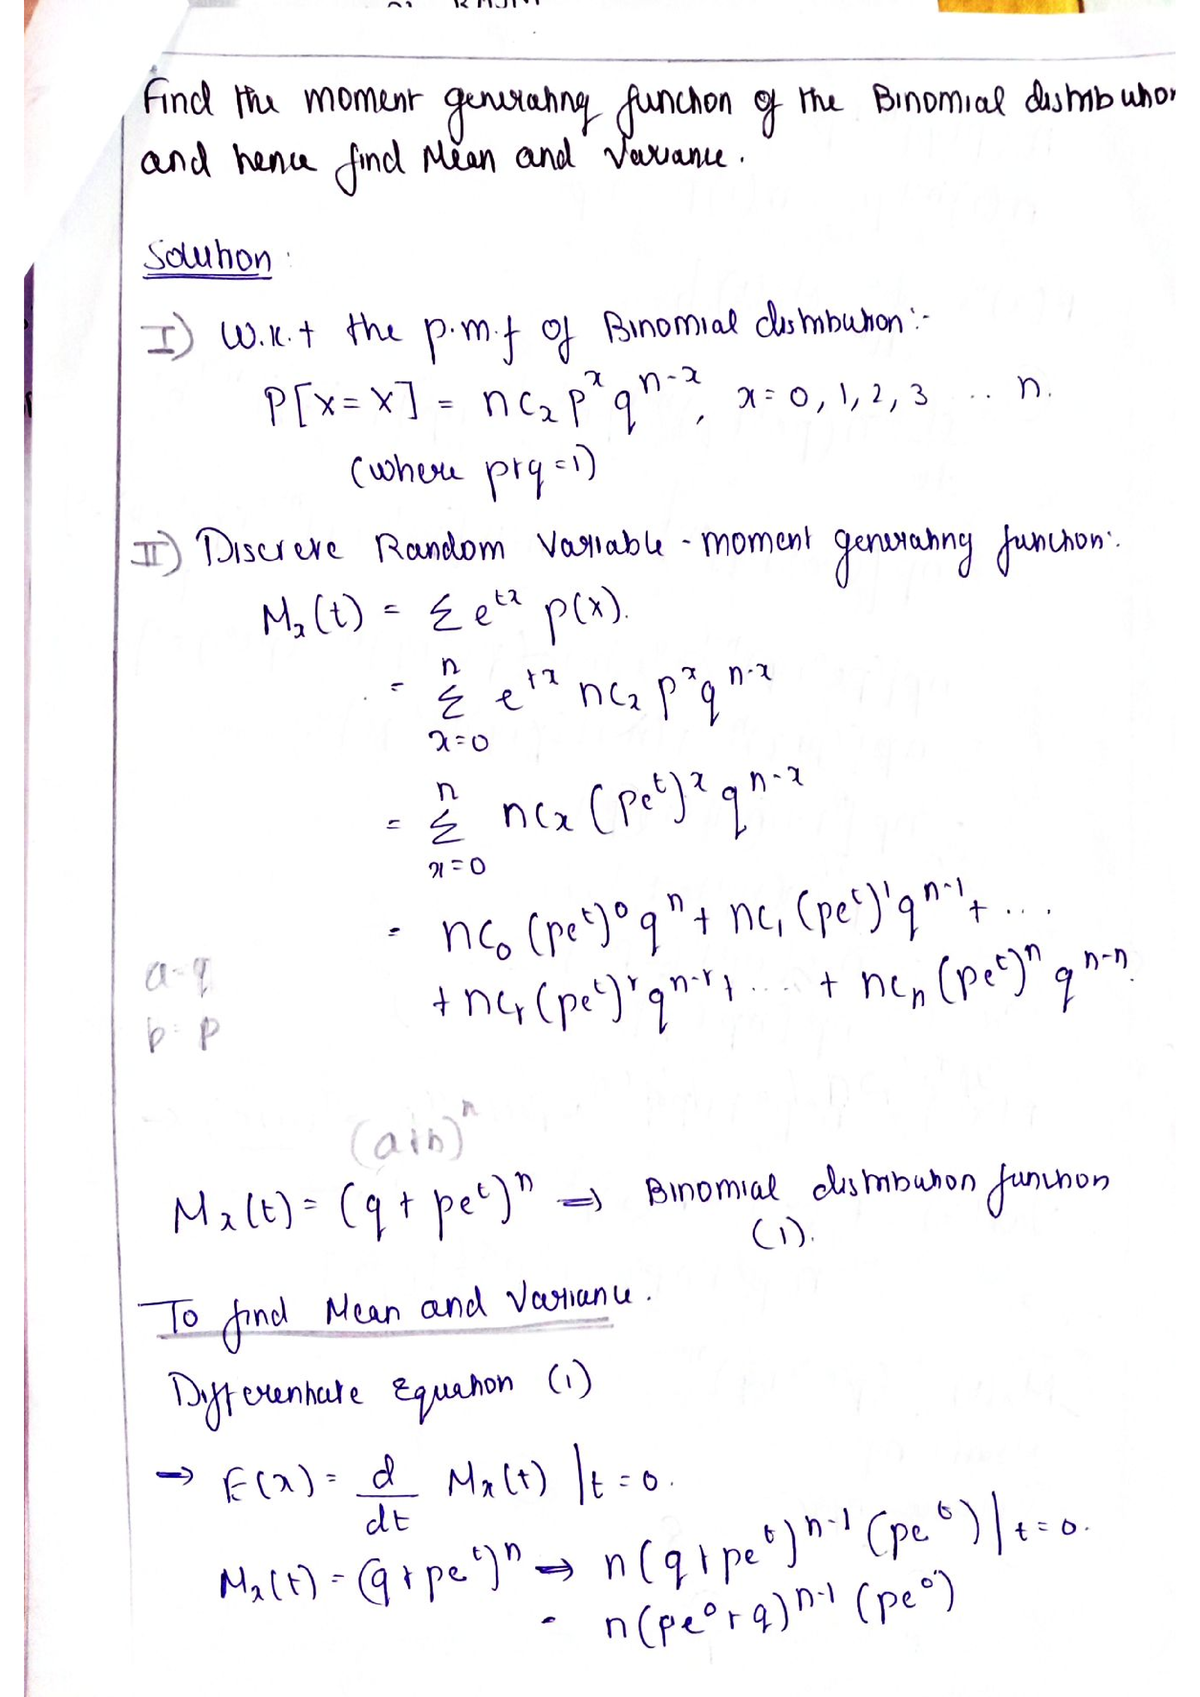 Find the moment generating function of the Binomial distribution
and hence find Mean and Variance.
Solution:
I) W.K.t the p.m.f of Binomial distribution:-
P[X=x] = nCx p^x q^n-x, x=0,1,2,3 .. n.
(where p+q=1)
II) Discrete Random Variable - moment generating function:
Mx(t) = Σ e^tx p(x).
= Σ_{x=0}^{n} e^tx nCx p^x q^n-x
= Σ_{x=0}^{n} nCx (pe^t)^x q^n-x
= nC0 (pe^t)^0 q^n + nC1 (pe^t)^1 q^n-1 + ....
+ nCr (pe^t)^r q^n-r + .... + nCn (pe^t)^n q^n-n.
a-q
b=p
(a+b)^n
Mx(t) = (q + pe^t)^n ⇒ Binomial distribution function
(1).
To find Mean and Variance.
Differentiate Equation (1)
→ E(x) = d/dt Mx(t) |t=0.
Mx(t) = (q+pe^t)^n ⇒ n(q+pe^t)^n-1 (pe^t)|t=0.
= n(pe^0+q)^n-1 (pe^0)